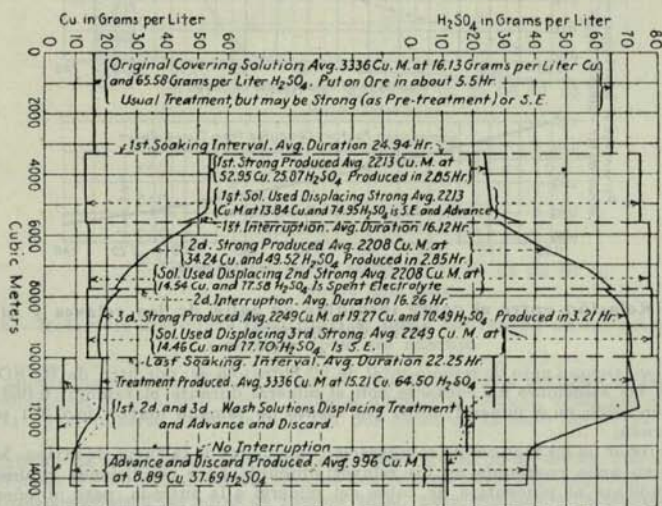 Cu in Grams per Liter H₂SO₄ in Grams per Liter
0 10 20 30 40 50 60 0 10 20 30 40 50 60 70 80
Original Covering Solution Avg. 3336 Cu. M. at 16.13 Grams per Liter Cu
and 65.58 Grams per Liter H₂SO₄. Put on Ore in about 5.5 Hr.
Usual Treatment, but may be Strong (as Pre-treatment) or S.E.
1st. Soaking Interval. Avg. Duration 24.94 Hr.
1st. Strong Produced Avg. 2213 Cu. M. at
52.95 Cu. 25.87 H₂SO₄ Produced in 2.85 Hr.
1st Sol. Used Displacing Strong Avg. 2213
Cu M at 13.84 Cu. and 74.95 H₂SO₄ is S.E. and Advance
1st. Interruption. Avg. Duration 16.12 Hr.
2d. Strong Produced Avg. 2208 Cu. M. at
34.24 Cu. and 49.52 H₂SO₄ Produced in 2.85 Hr.
Sol. Used Displacing 2nd Strong Avg. 2208 Cu. M. at
14.54 Cu. and 77.58 H₂SO₄ Is Spent Electrolyte
2d. Interruption. Avg. Duration 16.26 Hr.
3d. Strong Produced Avg. 2249 Cu. M. at 19.27 Cu. and 70.49 H₂SO₄ Produced in 3.21 Hr.
Sol. Used Displacing 3rd Strong. Avg. 2249 Cu. M. at
14.46 Cu. and 77.70 H₂SO₄ Is S.E.
Last Soaking. Interval. Avg. Duration 22.25 Hr.
Treatment Produced. Avg. 3336 Cu. M at 15.21 Cu. 64.50 H₂SO₄
1st, 2d. and 3d. Wash Solutions Displacing Treatment
and Advance and Discard.
No Interruption
Advance and Discard Produced. Avg. 996 Cu. M
at 8.89 Cu 37.69 H₂SO₄
0 2000 4000 6000 8000 10000 12000 14000
Cubic Meters